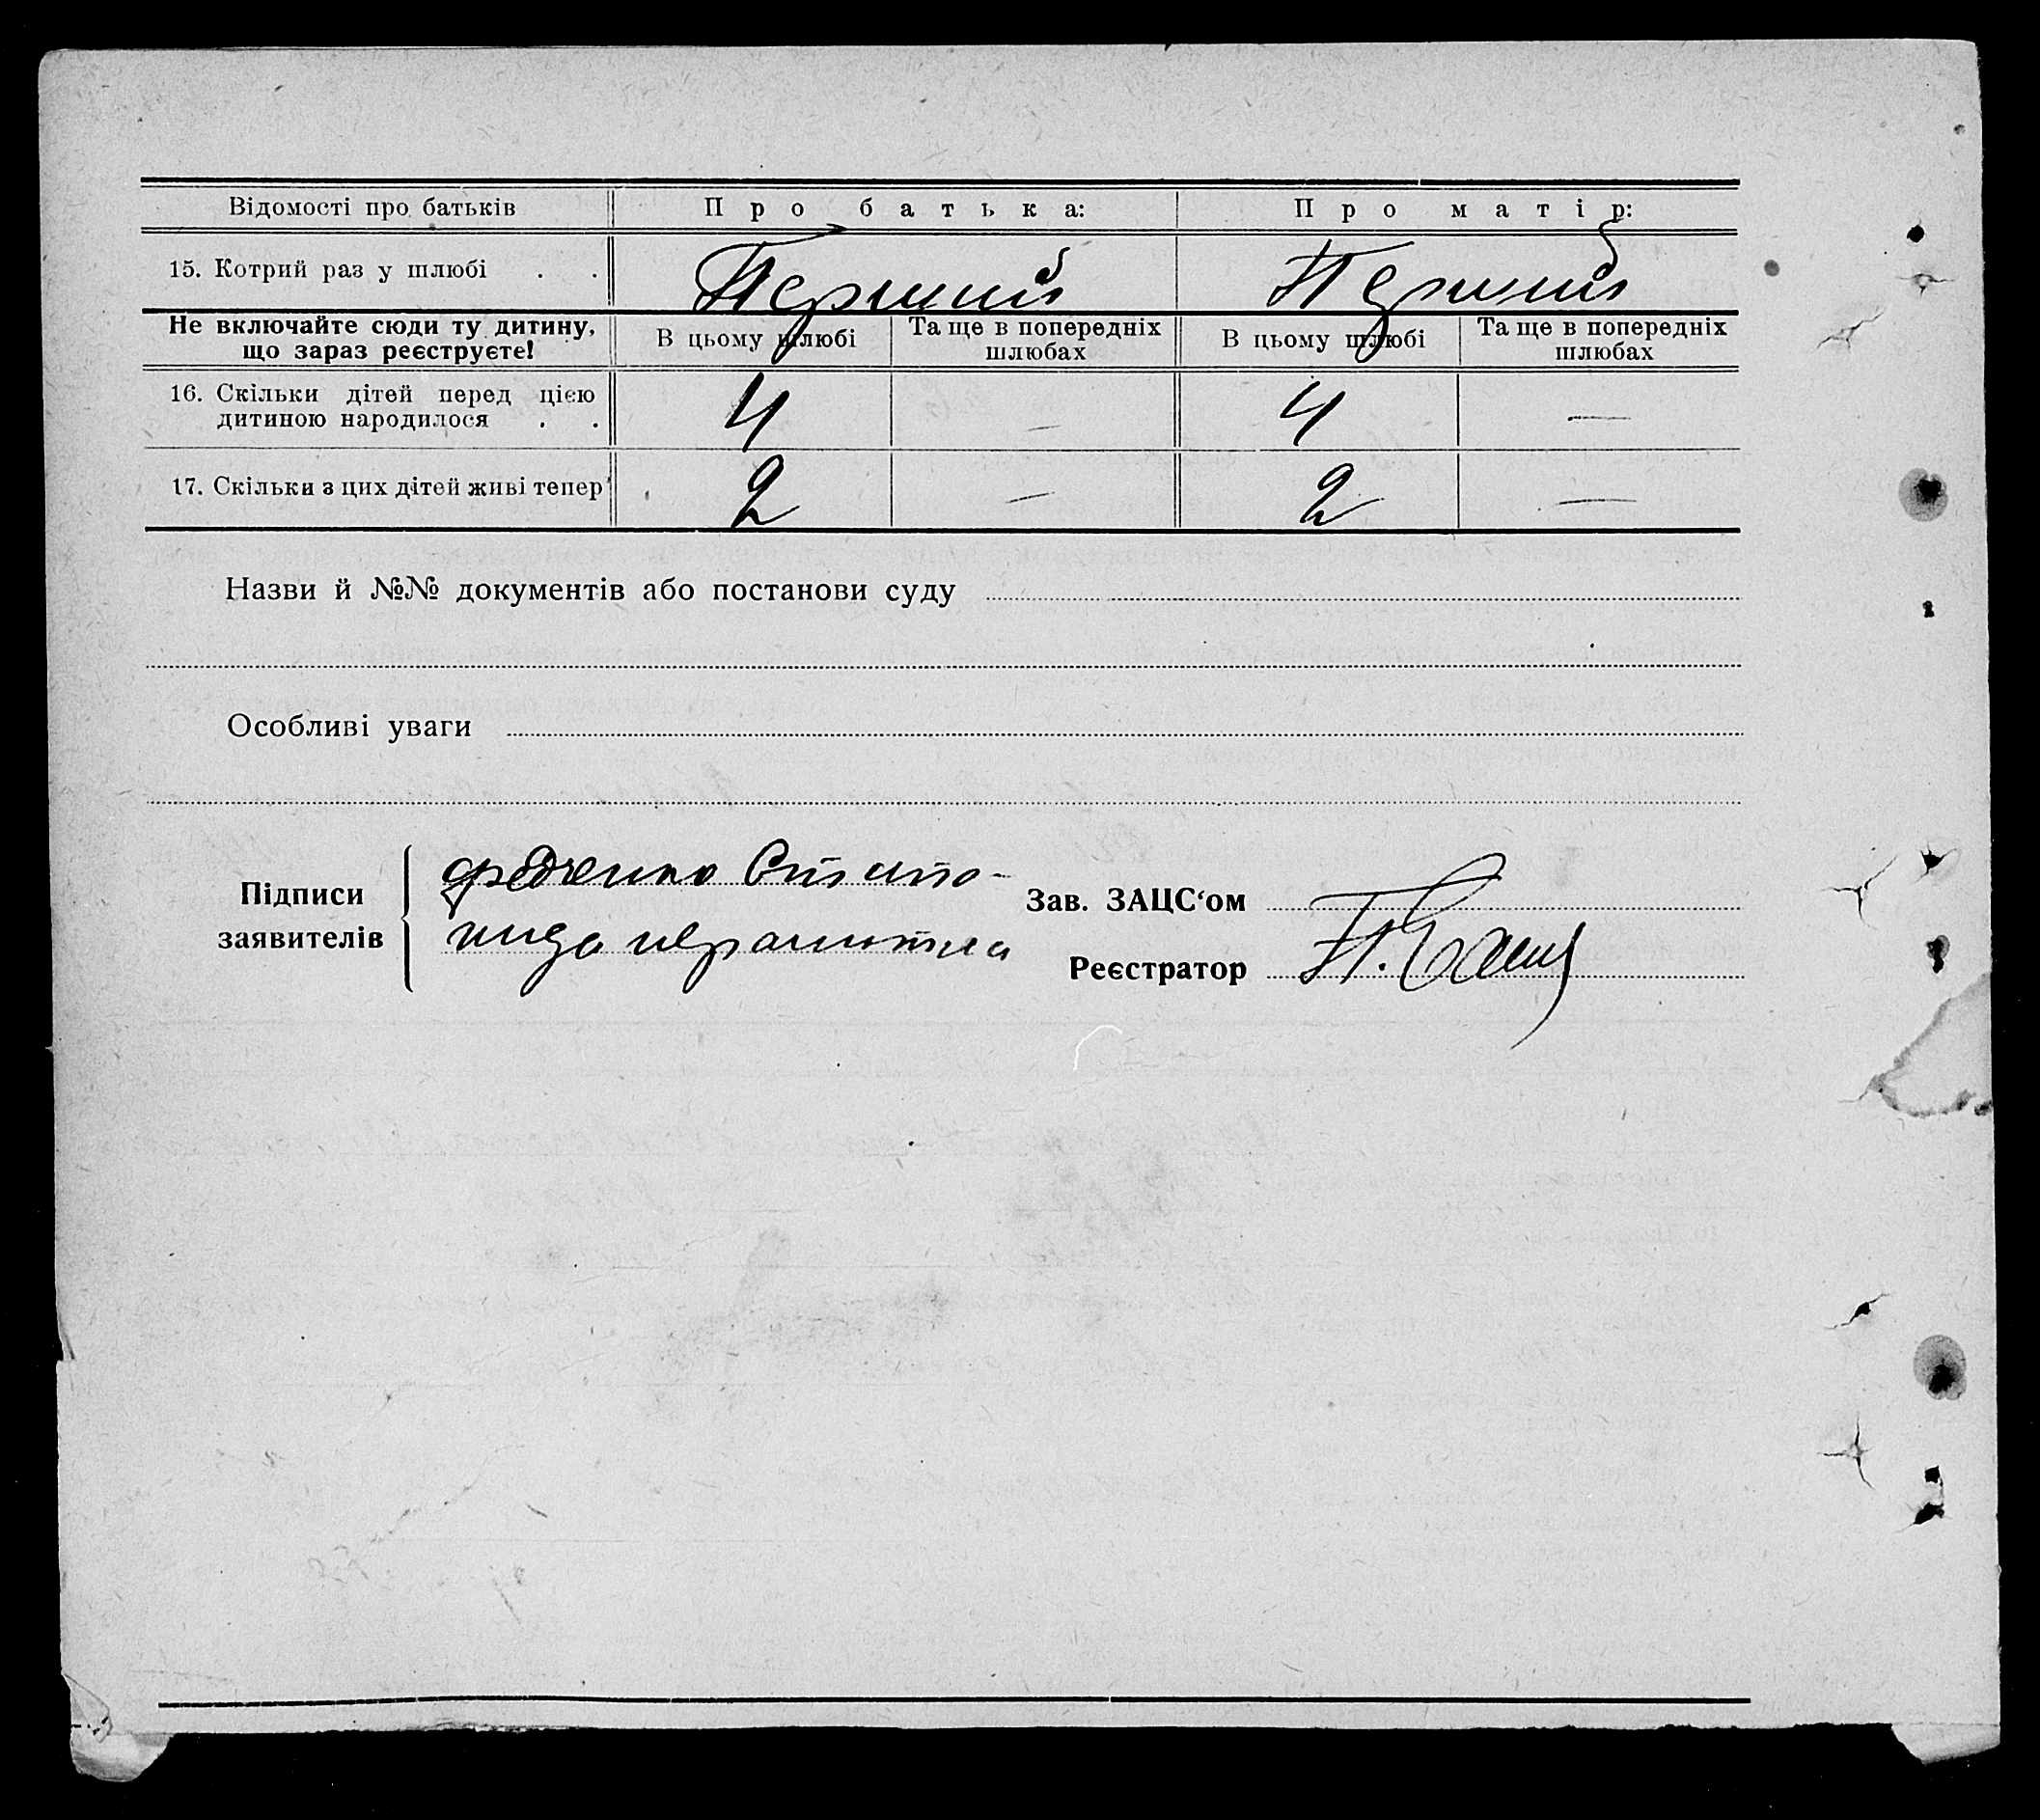 Відомості про батьків Про батька: Про матір:
15. Котрий раз у шлюбі . . Перший Перший
Не включайте сюди ту дитину, що зараз реєструєте! В цьому шлюбі Та ще в попередніх шлюбах В цьому шлюбі Та ще в попередніх шлюбах
16. Скільки дітей перед цією
дитиною народилося . . 4 — 4 —
17. Скільки з цих дітей живі тепер 2 — 2 —
Назви й №№ документів або постанови суду
Особливі уваги
Підписи заявителів
Зав. ЗАЦС‘ом
неграмотна
Реєстратор